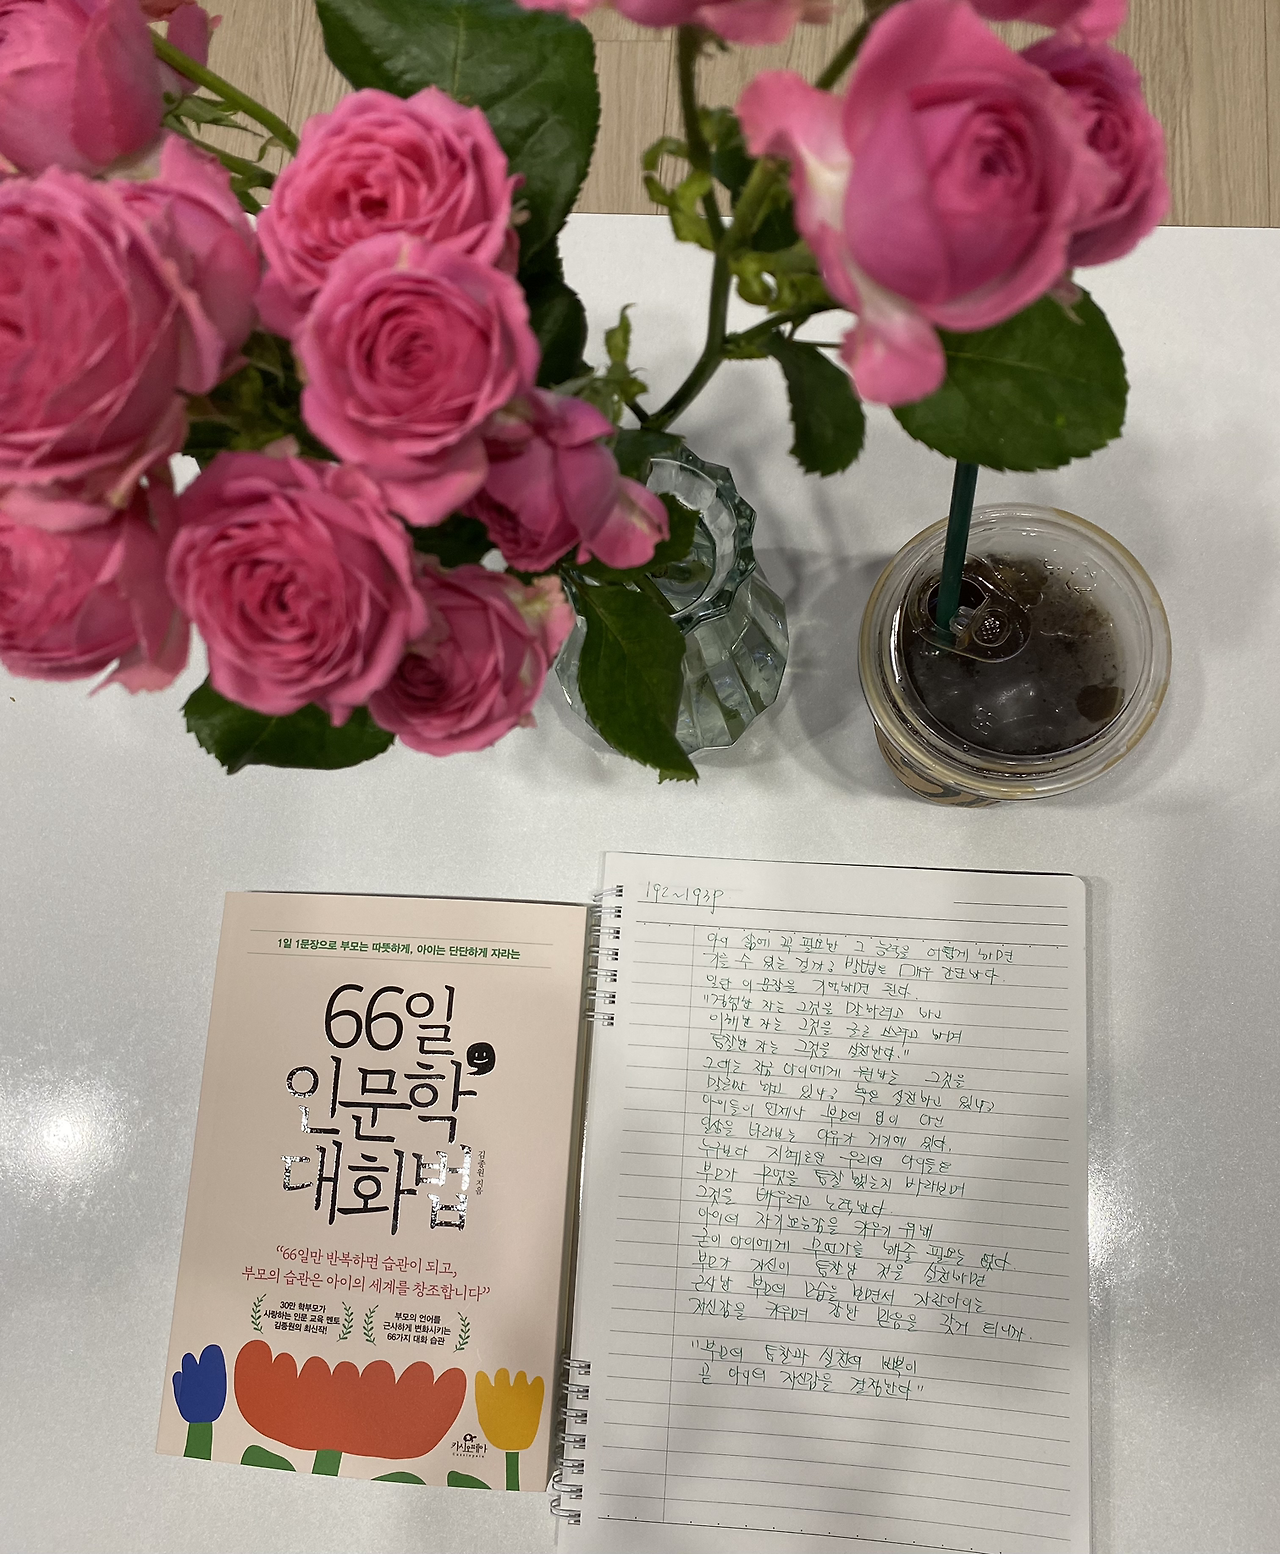 1일 1문장으로 부모는 따뜻하게, 아이는 단단하게 자라는
66일
인문학
대화법
김종원 지음
“66일만 반복하면 습관이 되고,
부모의 습관은 아이의 세계를 창조합니다”
30만 학부모가
사랑하는 인문 교육 멘토
김종원의 최신작!
부모의 언어를
근사하게 변화시키는
66가지 대화 습관
카시오페아
Cassiopeia
192~193p
아이 삶에 꼭 필요한 그 능력을 어떻게 하면
키울 수 있는 걸까? 방법은 매우 간단하다.
일단 이 문장을 기억하면 된다.
"경험한 자는 그것을 말하려고 하고
이해한 자는 그것을 글로 쓰려고 하며
통찰한 자는 그것을 실천한다."
그대는 지금 아이에게 원하는 그것을
말로만 하고 있나? 혹은 실천하고 있나?
아이들이 언제나 부모의 입이 아닌
일상을 바라보는 이유가 거기에 있다.
누구보다 지혜로운 우리의 아이들은
부모가 무엇을 통찰했는지 바라보며
그것을 배우려고 노력한다.
아이의 자기효능감을 키우기 위해
굳이 아이에게 무언가를 해줄 필요는 없다.
부모가 자신이 통찰한 것을 실천하면
근사한 부모의 모습을 보면서 자란아이는
자신감을 키우며 강한 믿음을 갖게 되니까.
"부모의 통찰과 실천의 반복이
곧 아이의 자신감을 결정한다"